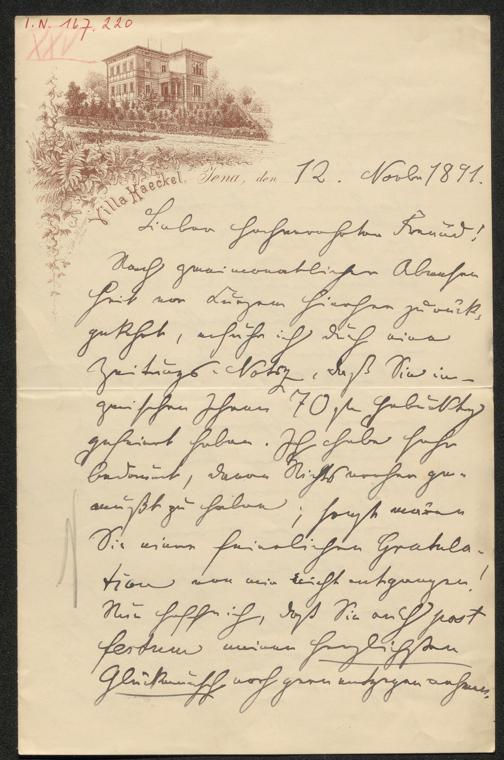 I.N. 167.220
XXV
Villa Haeckel. Jena, den 12. Novbr 1891.
Lieber hochverehrter Freund!
Nach zweimonatlicher Abwesen
heit vor Kurzem hierher zurück-
gekehrt, erfuhr ich durch eine
Zeitungs-Notiz, daß Sie in-
zwischen Ihren 70sten Geburtstag
gefeiert haben. Ich habe sehr
bedauert, davon Nichts vorher ge-
wußt zu haben; sonst wären
Sie einer feierlichen Gratula-
tion von mir nicht entgangen!
Nun hoffe ich, daß Sie auch post
festum meinen herzlichsten
Glückwunsch noch gern entgegen nehmen.